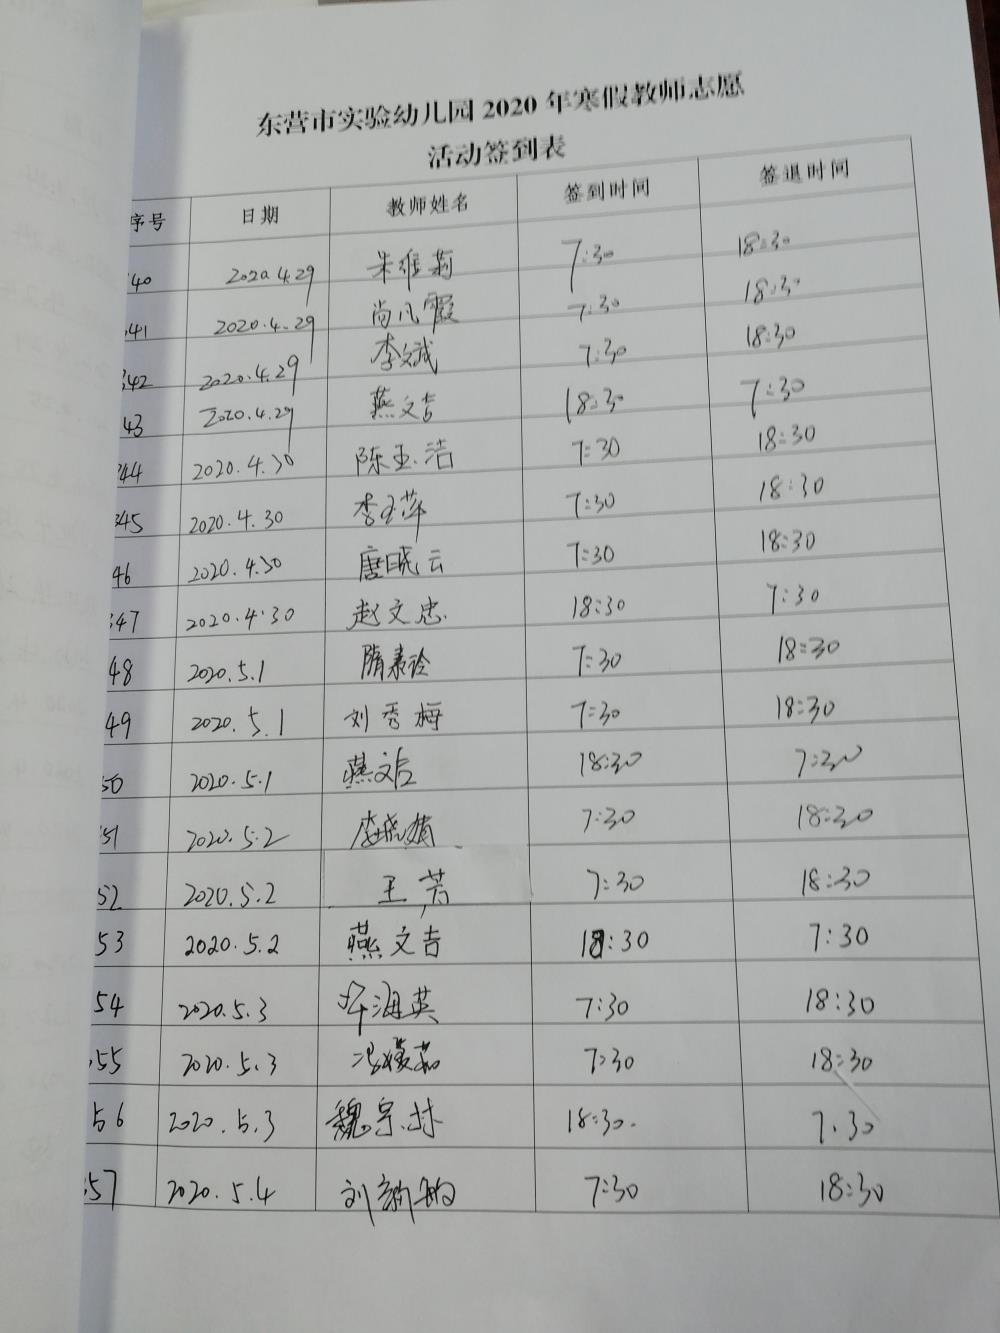 东营市实验幼儿园 2020 年寒假教师志愿
活动签到表
序号 日期 教师姓名 签到时间 签退时间
40 2020.4.29 朱维莉 7:30 18:30
41 2020.4.29 尚凡霞 7:30 18:30
342 2020.4.29 李斌 7:30 18:30
43 2020.4.29 燕文吉 18:30 7:30
344 2020.4.30 陈玉洁 7:30 18:30
345 2020.4.30 李玉萍 7:30 18:30
46 2020.4.30 唐晓云 7:30 18:30
347 2020.4.30 赵文忠 18:30 7:30
48 2020.5.1 隋素玲 7:30 18:30
49 2020.5.1 刘秀梅 7:30 18:30
50 2020.5.1 燕文吉 18:30 7:30
51 2020.5.2 李晓娟 7:30 18:30
52 2020.5.2 王芳 7:30 18:30
53 2020.5.2 燕文吉 18:30 7:30
54 2020.5.3 海英 7:30 18:30
55 2020.5.3 冯 7:30 18:30
56 2020.5.3 魏宗林 18:30. 7.30
57 2020.5.4 刘新 7:30 18:30